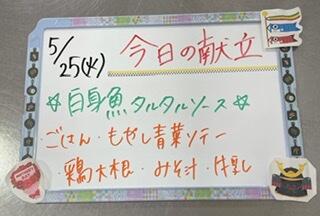 5/25(火) 今日の献立
☆白身魚タルタルソース☆
ごはん・もやし青葉ソテー
・鶏大根・みそ汁・牛乳